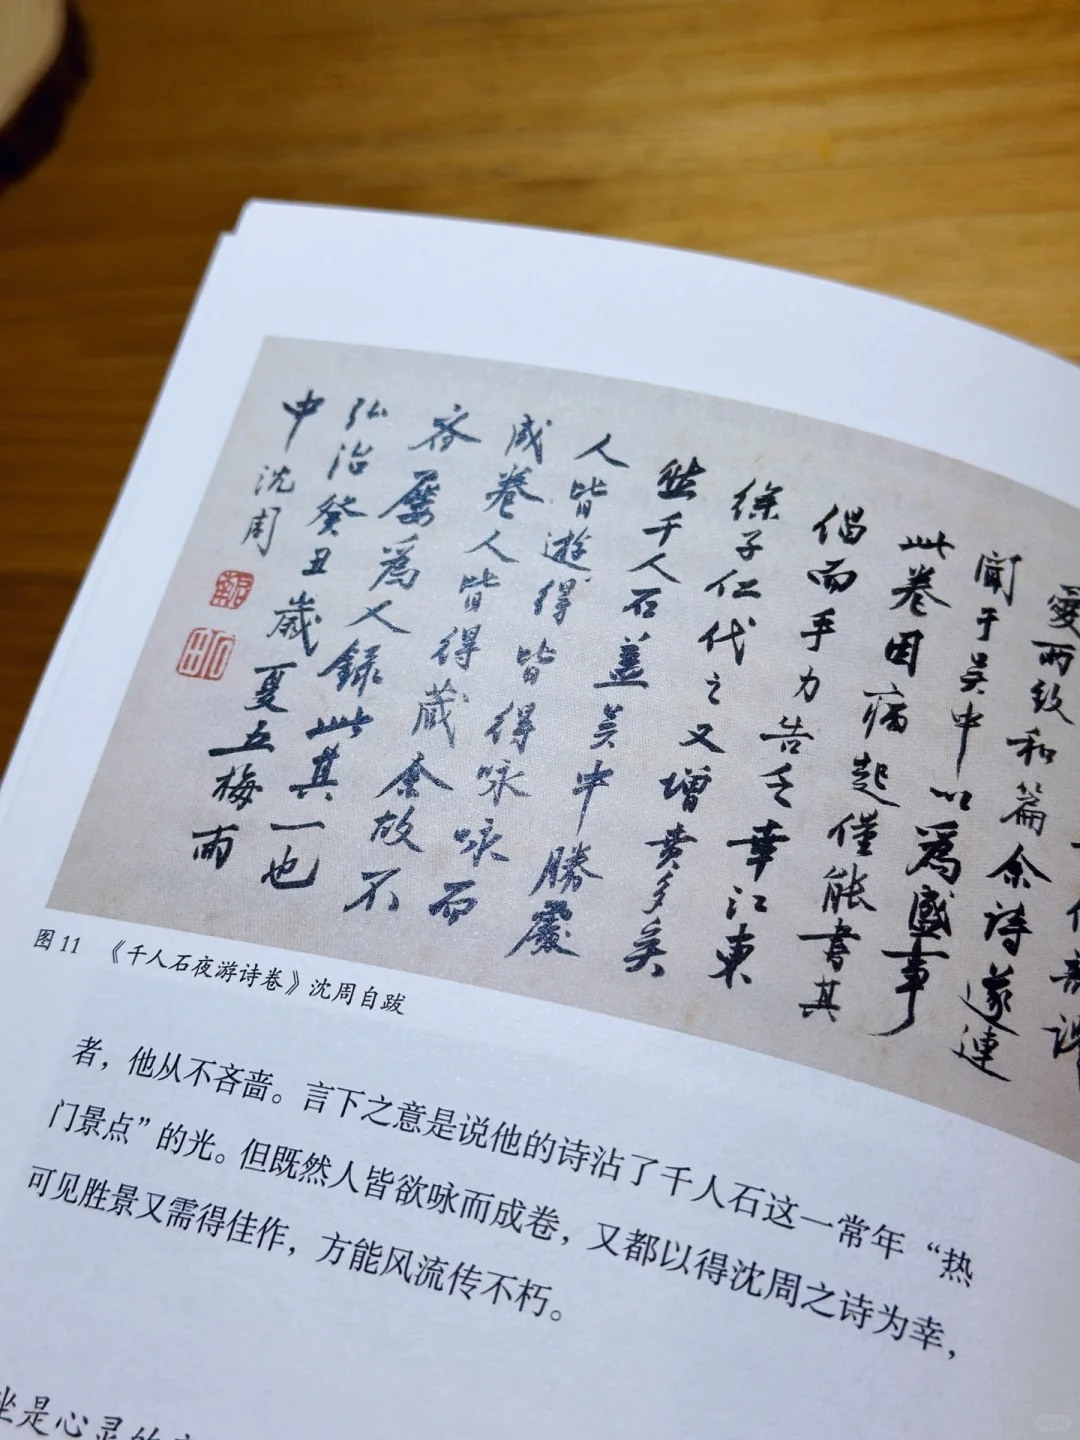 愛而致和篇余詩遂連
聞于吴中以為盛事
此卷因病起僅能書其
倡而手力告乏幸江東
徐子仁代之又增黄多矣
然千人石蓋吴中勝處
人皆遊得皆得咏咏而
成卷人皆得蔵余故不
吝屡為人録此其一也
弘治癸丑歲夏五梅雨
中沈周
图 11 《千人石夜游诗卷》沈周自跋
者，他从不吝啬。言下之意是说他的诗沾了千人石这一常年“热
门景点”的光。但既然人皆欲咏而成卷，又都以得沈周之诗为幸，
可见胜景又需得佳作，方能风流传不朽。
坐是心灵的